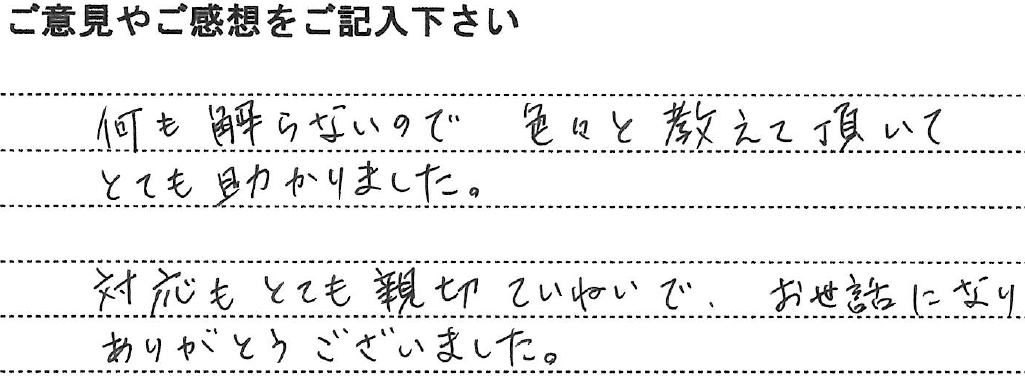 ご意見やご感想をご記入下さい
何も解らないので 色々と教えて頂いて
とても助かりました。
対応もとても親切ていねいで、お世話になり
ありがとうございました。